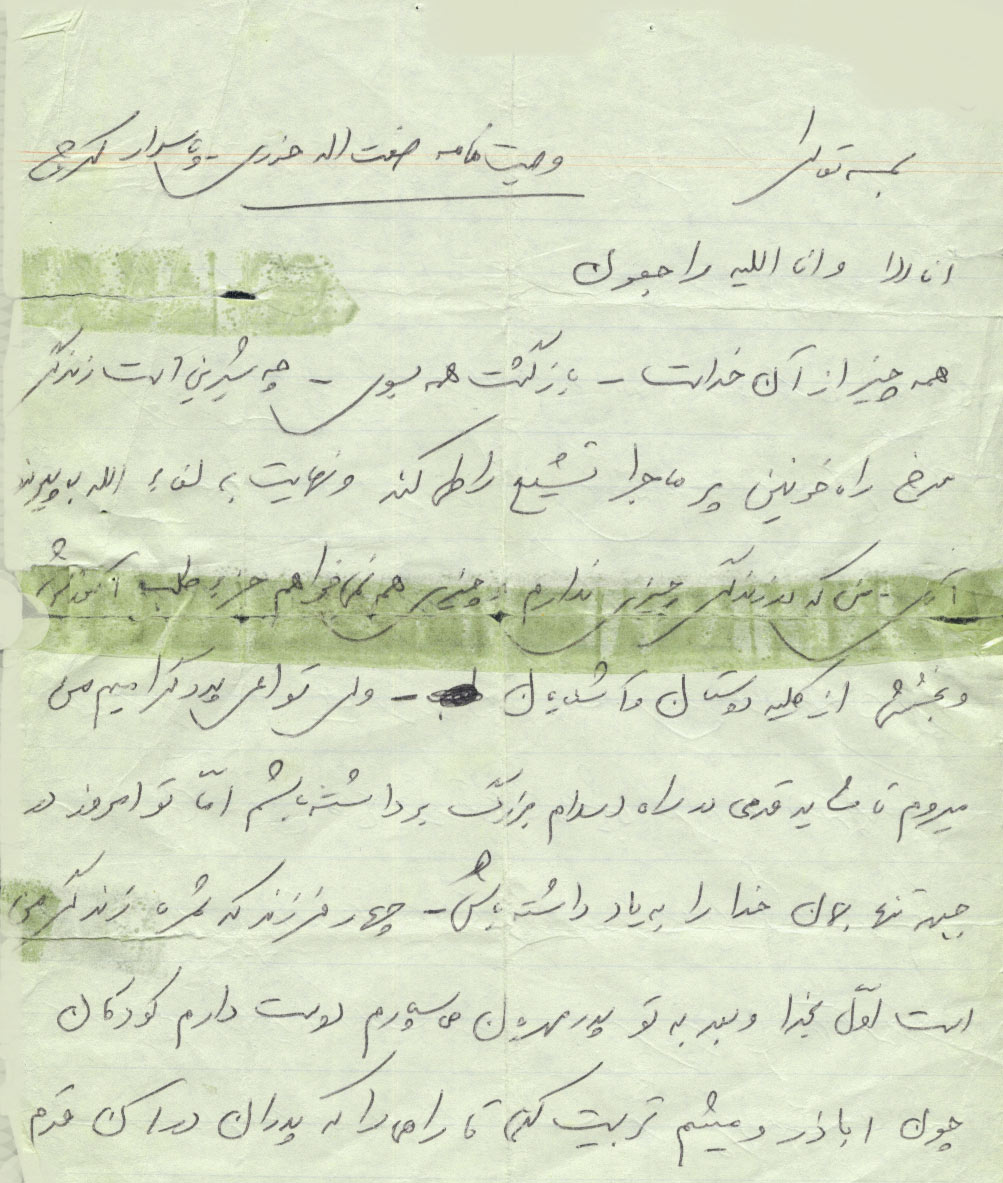 بسمه تعالی وصیت نامه صفت اله خدری - پاسدار کرج
انا لله و انا الیه راجعون
همه چیز از آن خداست - بازگشت همه بسوی - چه شیرین است زندگی
سرخ راه خونین پر ماجرا تشیع را طی کند و نهایت به لقاء الله به پیوندد
آری - من که در زندگی چیزی ندارم و چیزی هم نمیخواهم جزء طلب
و بخشش از کلیه دوستان و آشنایان - ولی تو ای پدر گرامیم من
میروم تا شاید قدمی در راه اسلام بزرگ برداشته باشم امّا تو امروز در
جبهه تنها بمان خدا را به یاد داشته باش - چهار فرزند که ثمره زندگی من
است اوّل بخدا و بعد به تو پدر مهربان می سپارم دوست دارم کودکان
چون اباذر و میثم تربیت کنی تا راهی را که پدران در آن قدم